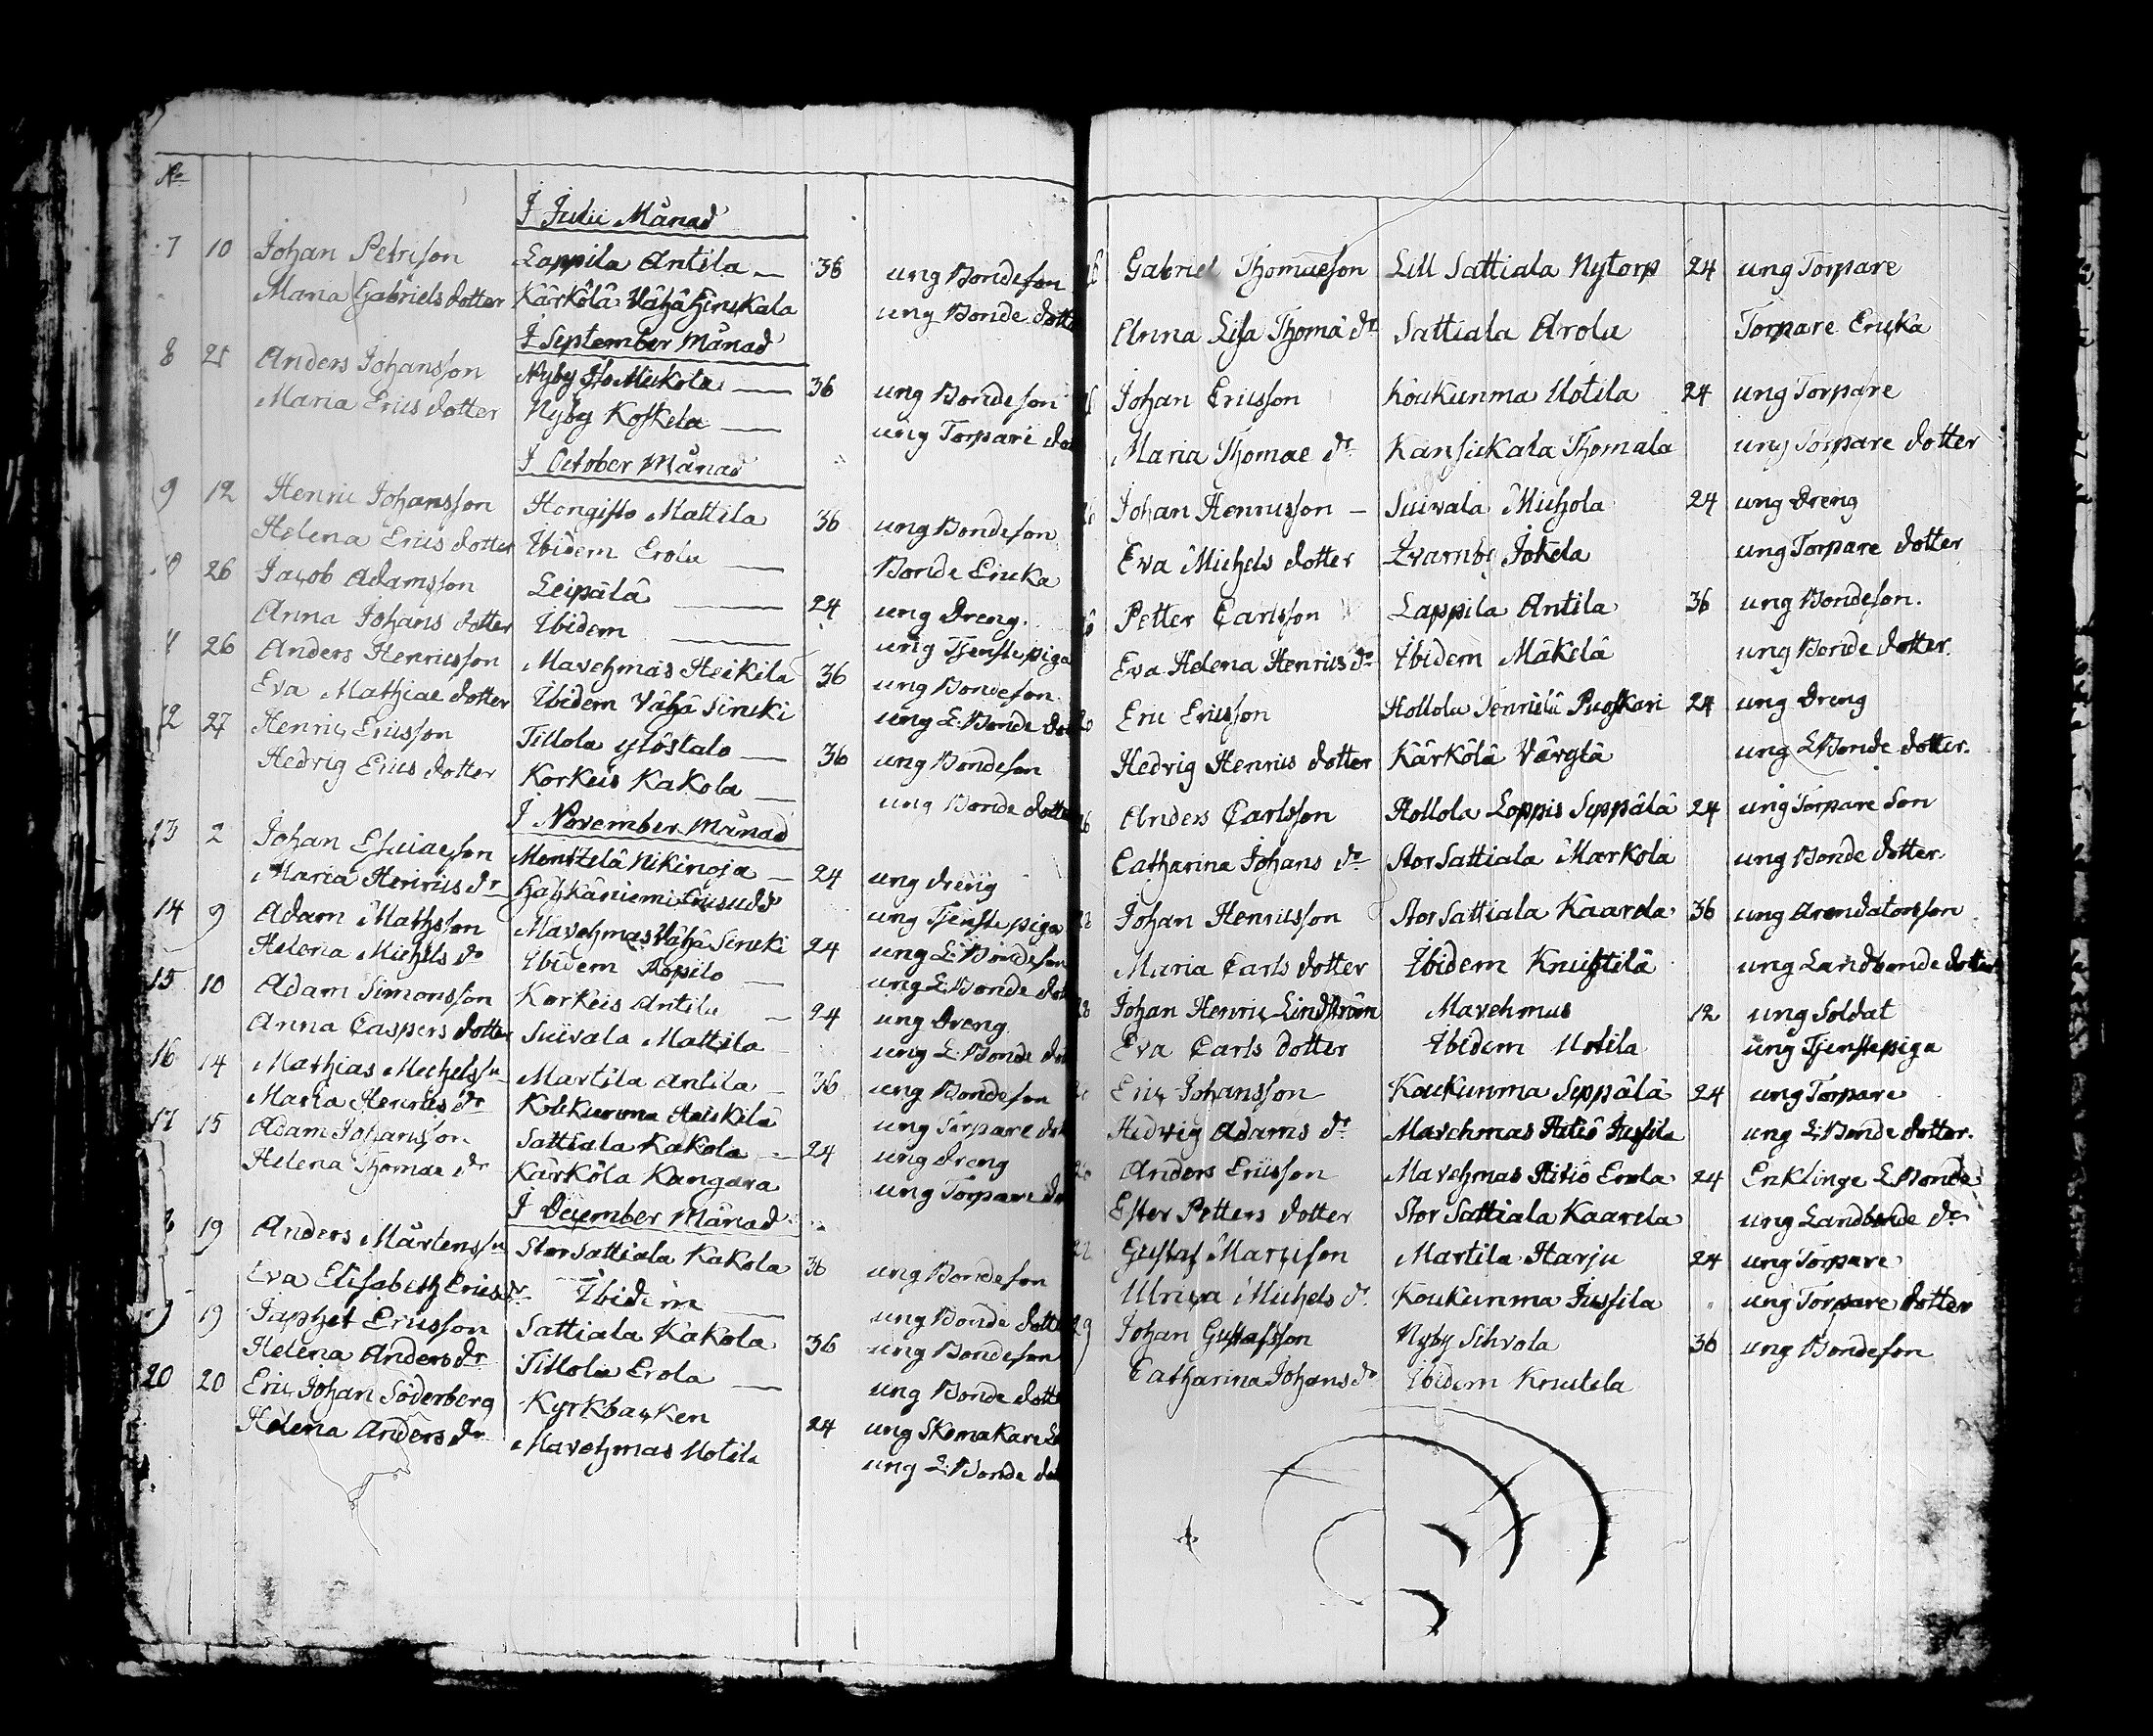 No
I Julii Månad
7 10 Johan Petrison Lappila Antila 36 ung Bondeson
Maria Gabriels dotter Kärkölä Vähä Hinskala ung Bonde dotte
I September Månad
8 21 Anders Johansson Nyby Iso Mickola 36 ung Bondeson
Maria Erics dotter Nyby Koskela ung Torpare dot
I October Månad
9 12 Henric Johansson Hongisto Mattila 36 ung Bondeson
Helena Erics dotter Ibidem Erola Bonde Encka
26 Jacob Adamsson Leipälä 24 ung Dreng.
Anna Johans dotter Ibidem ung Tjenstepiga
26 Anders Henricsson Mavehmas Heikilä 36 ung Bondeson
Eva Mathiae dotter Ibidem Vähä Sincki ung L: Bonde dot
12 27 Henric Ericsson Tillola Ylöstalo 36 ung Bondeson
Hedvig Erics dotter Korkeis Kakola ung Bonde dotte
I November Månad
13 2 Johan Esaiaeson Mentzelä Nikinoja 24 ung dreng
Maria Henrics dr ung Tjenstepiga
14 9 Adam Mathsson Mavehmas Vähä Sincki 24 ung L: Bondeson
Helena Michels dr Ibidem ung L: Bonde dot
15 10 Adam Simonsson Korkeis Antila 24 ung Dreng
Anna Caspers dotter Suivala Mattila ung L: Bonde dot
16 14 Mathias Michelsn Martila Antila 36 ung Bondeson
Maria Henrics dr Koukunma Heiskilä ung Torpare dot
17 15 Adam Johansson Sattiala Kakola 24 ung dreng
Helena Thomae dr Kärkölä Kangara ung Torpare do
I December Månad
8 19 Anders Mårtenssn Stor Sattiala Kakola 36 ung Bondeson
Eva Elisabeth Erics dr Ibidem ung Bonde dotte
9 19 Japhet Ericsson Sattiala Kakola 36 ung Bondeson
Helena Anders dr Tillola Erola ung Bonde dotte
20 20 Eric Johan Söderberg Kyrkbacken 24 ung Skomakare
Helena Anders dr Mavehmas Uotila ung L: Bonde do
Gabriel Thomaeson Lill Sattiala Nytorp 24 ung Torpare
Anna Lisa Thomä dr Sattiala Arola Torpare Encka
Johan Ericsson Koukunma Uotila 24 ung Torpare
Maria Thomae dr Kansickala Thomala ung Torpare dotter
Johan Henricsson Suivala Michola 24 ung Dreng
Eva Michels dotter Qvarnby Jokela ung Torpare dotter
Petter Carlsson Lappila Antila 36 ung Bondeson.
Eva Helena Henrics dr Ibidem Mäkelä ung Bonde dotter.
Eric Ericsson Hollola Tennilä Puoskari 24 ung Dreng
Hedvig Henrics dotter Kärkölä Värglä ung L Bonde dotter.
Anders Carlsson Hollola Loppis Seppälä 24 ung Torpare Son
Catharina Johans dr Stor Sattiala Markola ung Bonde dotter
Johan Henricsson Stor Sattiala Kaarela 36 ung Arendatorsson
Maria Carls dotter Ibidem Knuttilä ung Landbonde dotter
28 Johan Henric Lindström Mavehmas 12 ung Soldat
Eva Carls dotter Ibidem Uotila ung Tjenstepiga
Eric Johansson Koukunma Seppälä 24 ung Torpare
Hedvig Adams dr Mavehmas Hetiö Jussila ung L: Bonde dotter.
Anders Ericsson Mavehmas Hetiö Erola 24 Enklinge L Bonde
Ester Petters dotter Stor Sattiala Kaarela ung Landbonde dr
Gustaf Marcison Martila Harju 24 ung Torpare
Ulrica Michels dr Koukunma Jussila ung Torpare dotter
29 Johan Gustafsson Nyby Sihvola 36 ung Bondeson
Catharina Johans dr Ibidem Knutila